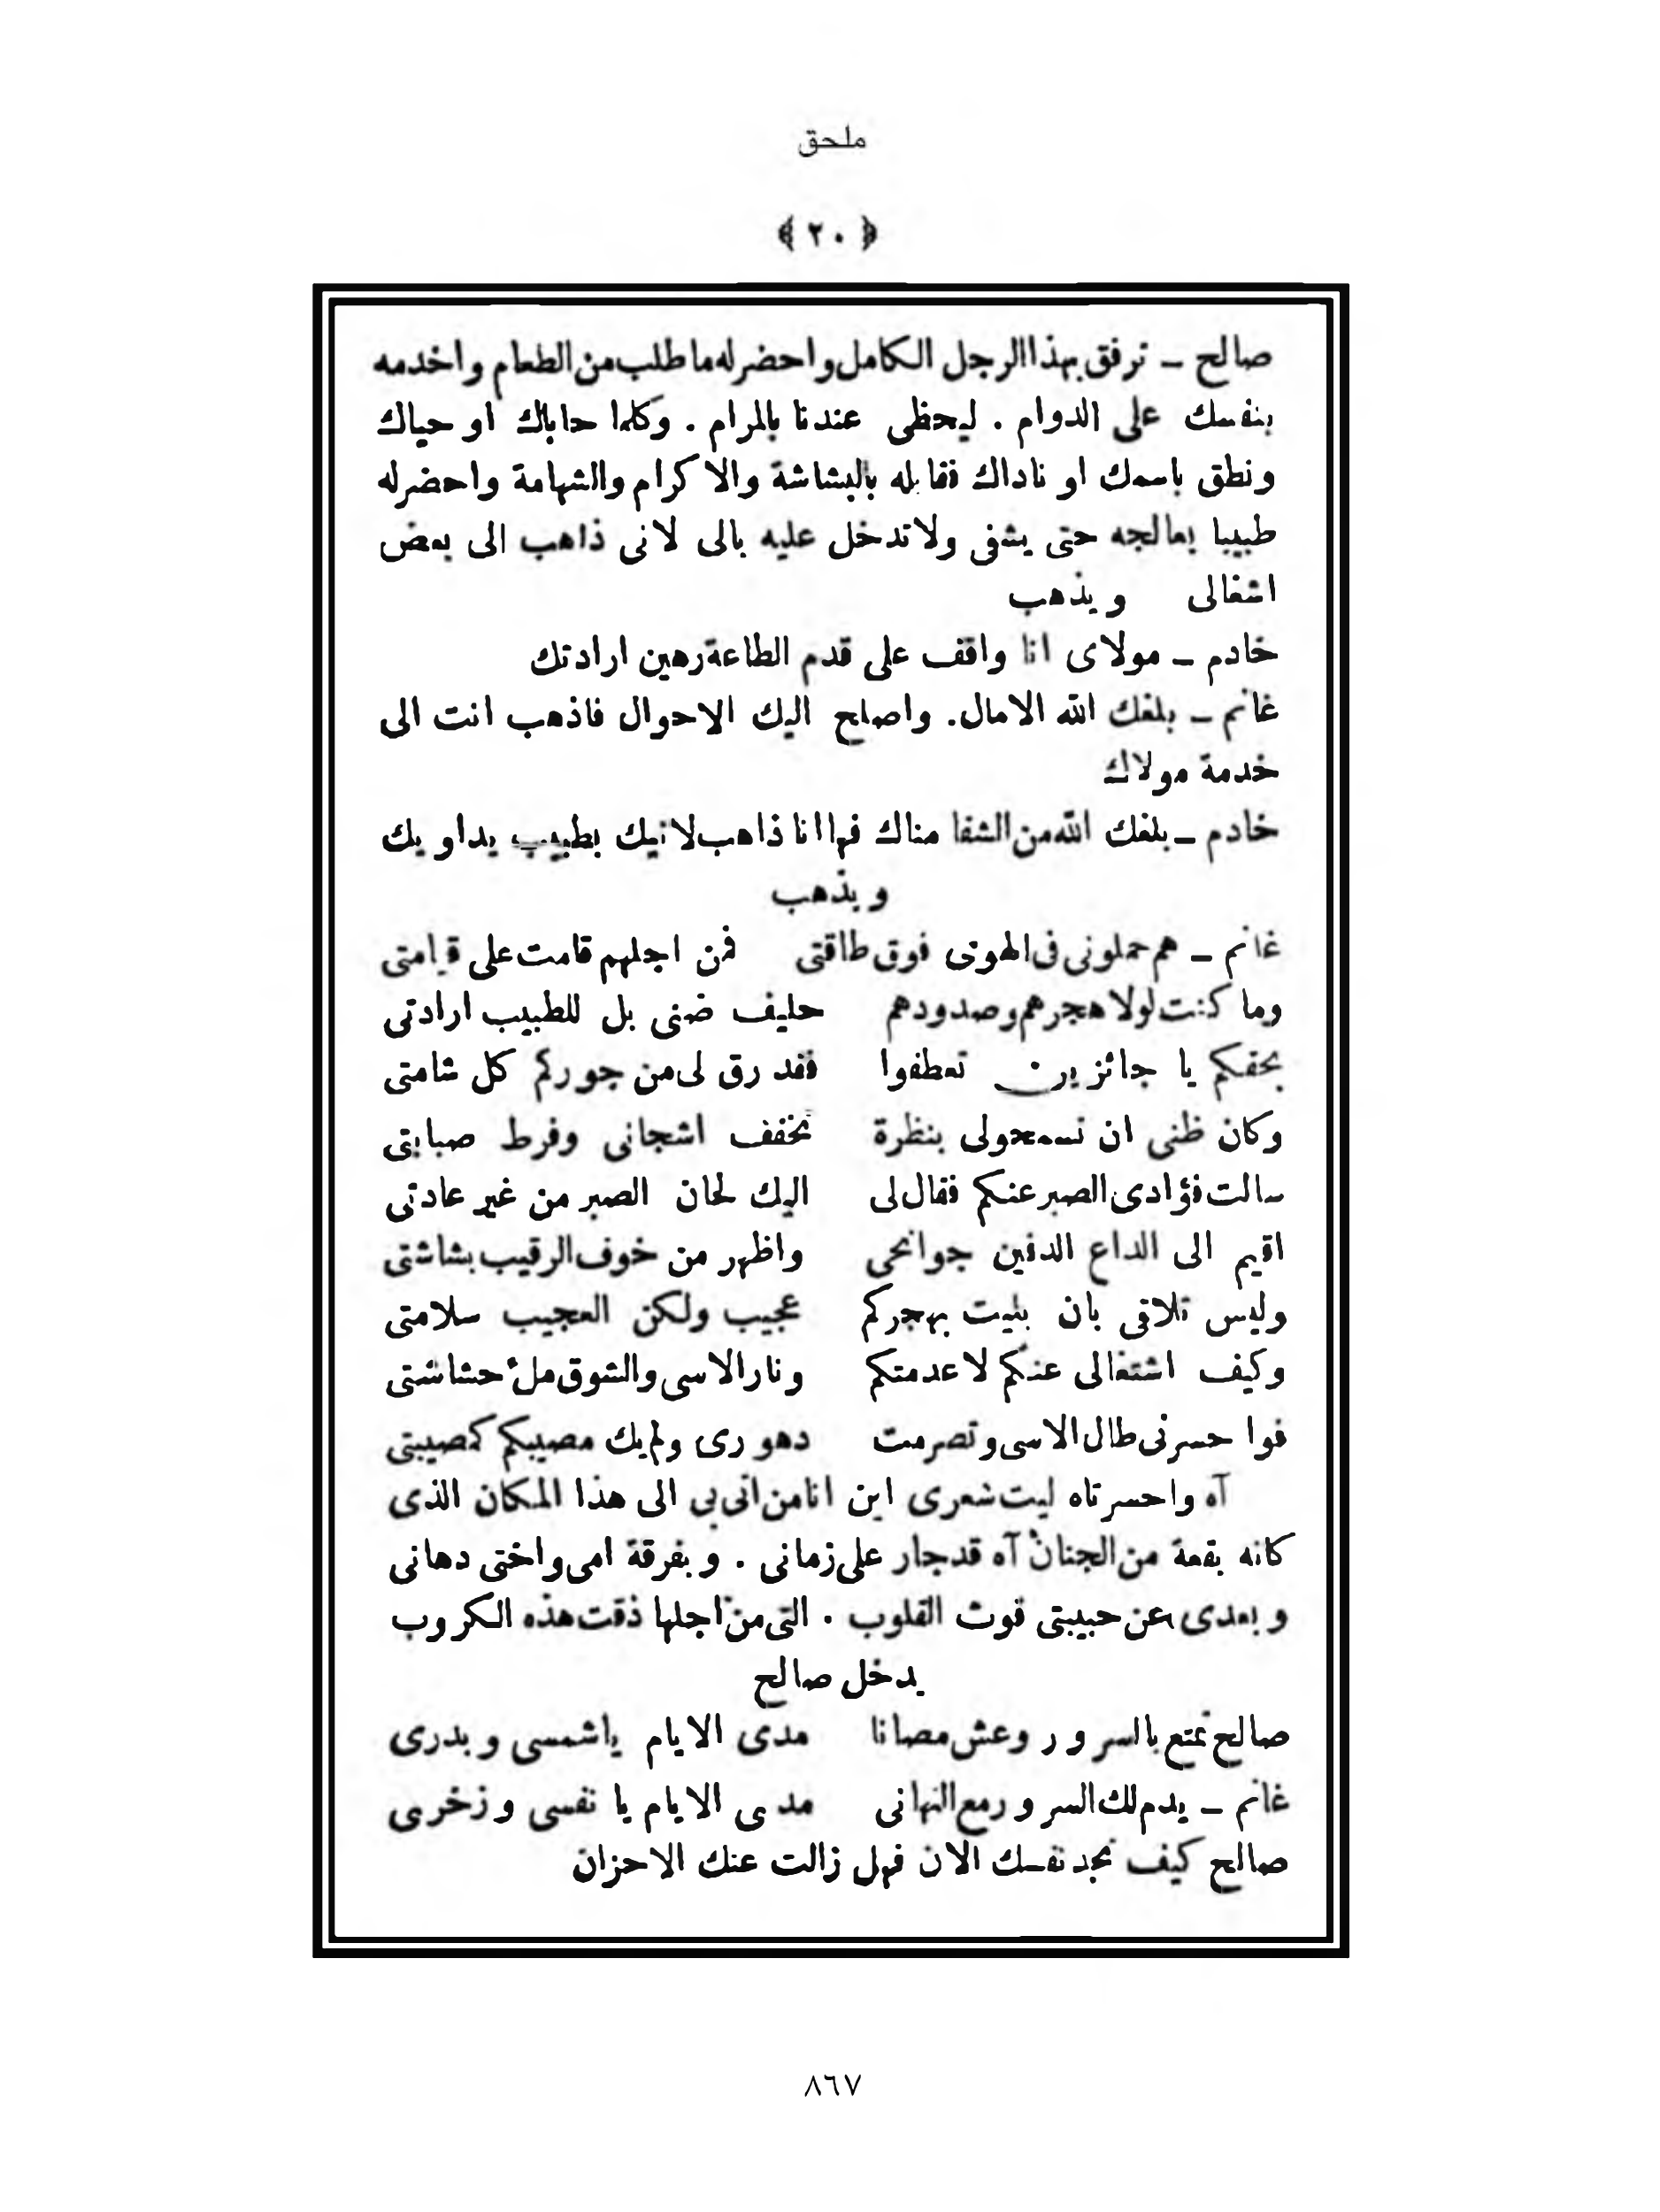 ملحق
﴿٢٠﴾
صالح ــ ترفق بهذا الرجل الكامل واحضر له ما طلب من الطعام واخدمه
بنفسك على الدوام . ليحظى عندنا بالمرام . وكلما حاباك او حياك
ونطق باسمك او ناداك فقابله بالبشاشة والاكرام والشهامة واحضر له
طبيبا يعالجه حتى يشفى ولا تدخل عليه بالى لانى ذاهب الى بعض
اشغالى ويذهب
خادم ــ مولاى انا واقف على قدم الطاعة رهين ارادتك
غانم ــ بلغك الله الامال. واصلح اليك الاحوال فاذهب انت الى
خدمة مولاك
خادم ــ بلغك الله من الشفا مناك فها انا ذاهب لاتيك بطبيب يداويك
ويذهب
غانم ــ هم حملونى فى الهوى فوق طاقتى فمن اجلهم قامت على قيامتى
وما كنت لولا هجرهم وصدودهم حليف ضنى بل للطبيب ارادتى
بحقكم يا جائزين تعطفوا فقد رق لى من جوركم كل شامتى
وكان ظنى ان تسمحولى بنظرة تخفف اشجانى وفرط صبابتى
سالت فؤادى الصبر عنكم فقال لى اليك لحان الصبر من غير عادتى
اقيم الى الداع الدفين جوانحى واظهر من خوف الرقيب بشاشتى
وليس تلافى بان بليت بهجركم عجيب ولكن العجيب سلامتى
وكيف اشتغالى عنكم لا عدمتكم ونار الاسى والشوق ملء حشاشتى
فوا حسرتى طال الاسى وتصرمت دهورى ولم يك مصيبكم كمصيبتى
آه واحسرتاه ليت شعرى اين انا من اتى بى الى هذا المكان الذى
كانه بقعة من الجنان آه قد جار على زمانى . وبفرقة امى واختى دهانى
وبعدى عن حبيبتى قوت القلوب . التى من اجلها ذقت هذه الكروب
يدخل صالح
صالح تمتع بالسرور وعش مصانا مدى الايام ياشمسى وبدرى
غانم ــ يدم لك السرور مع التهانى مدى الايام يا نفسى وزخرى
صالح كيف تجد نفسك الان فهل زالت عنك الاحزان
٨٦٧